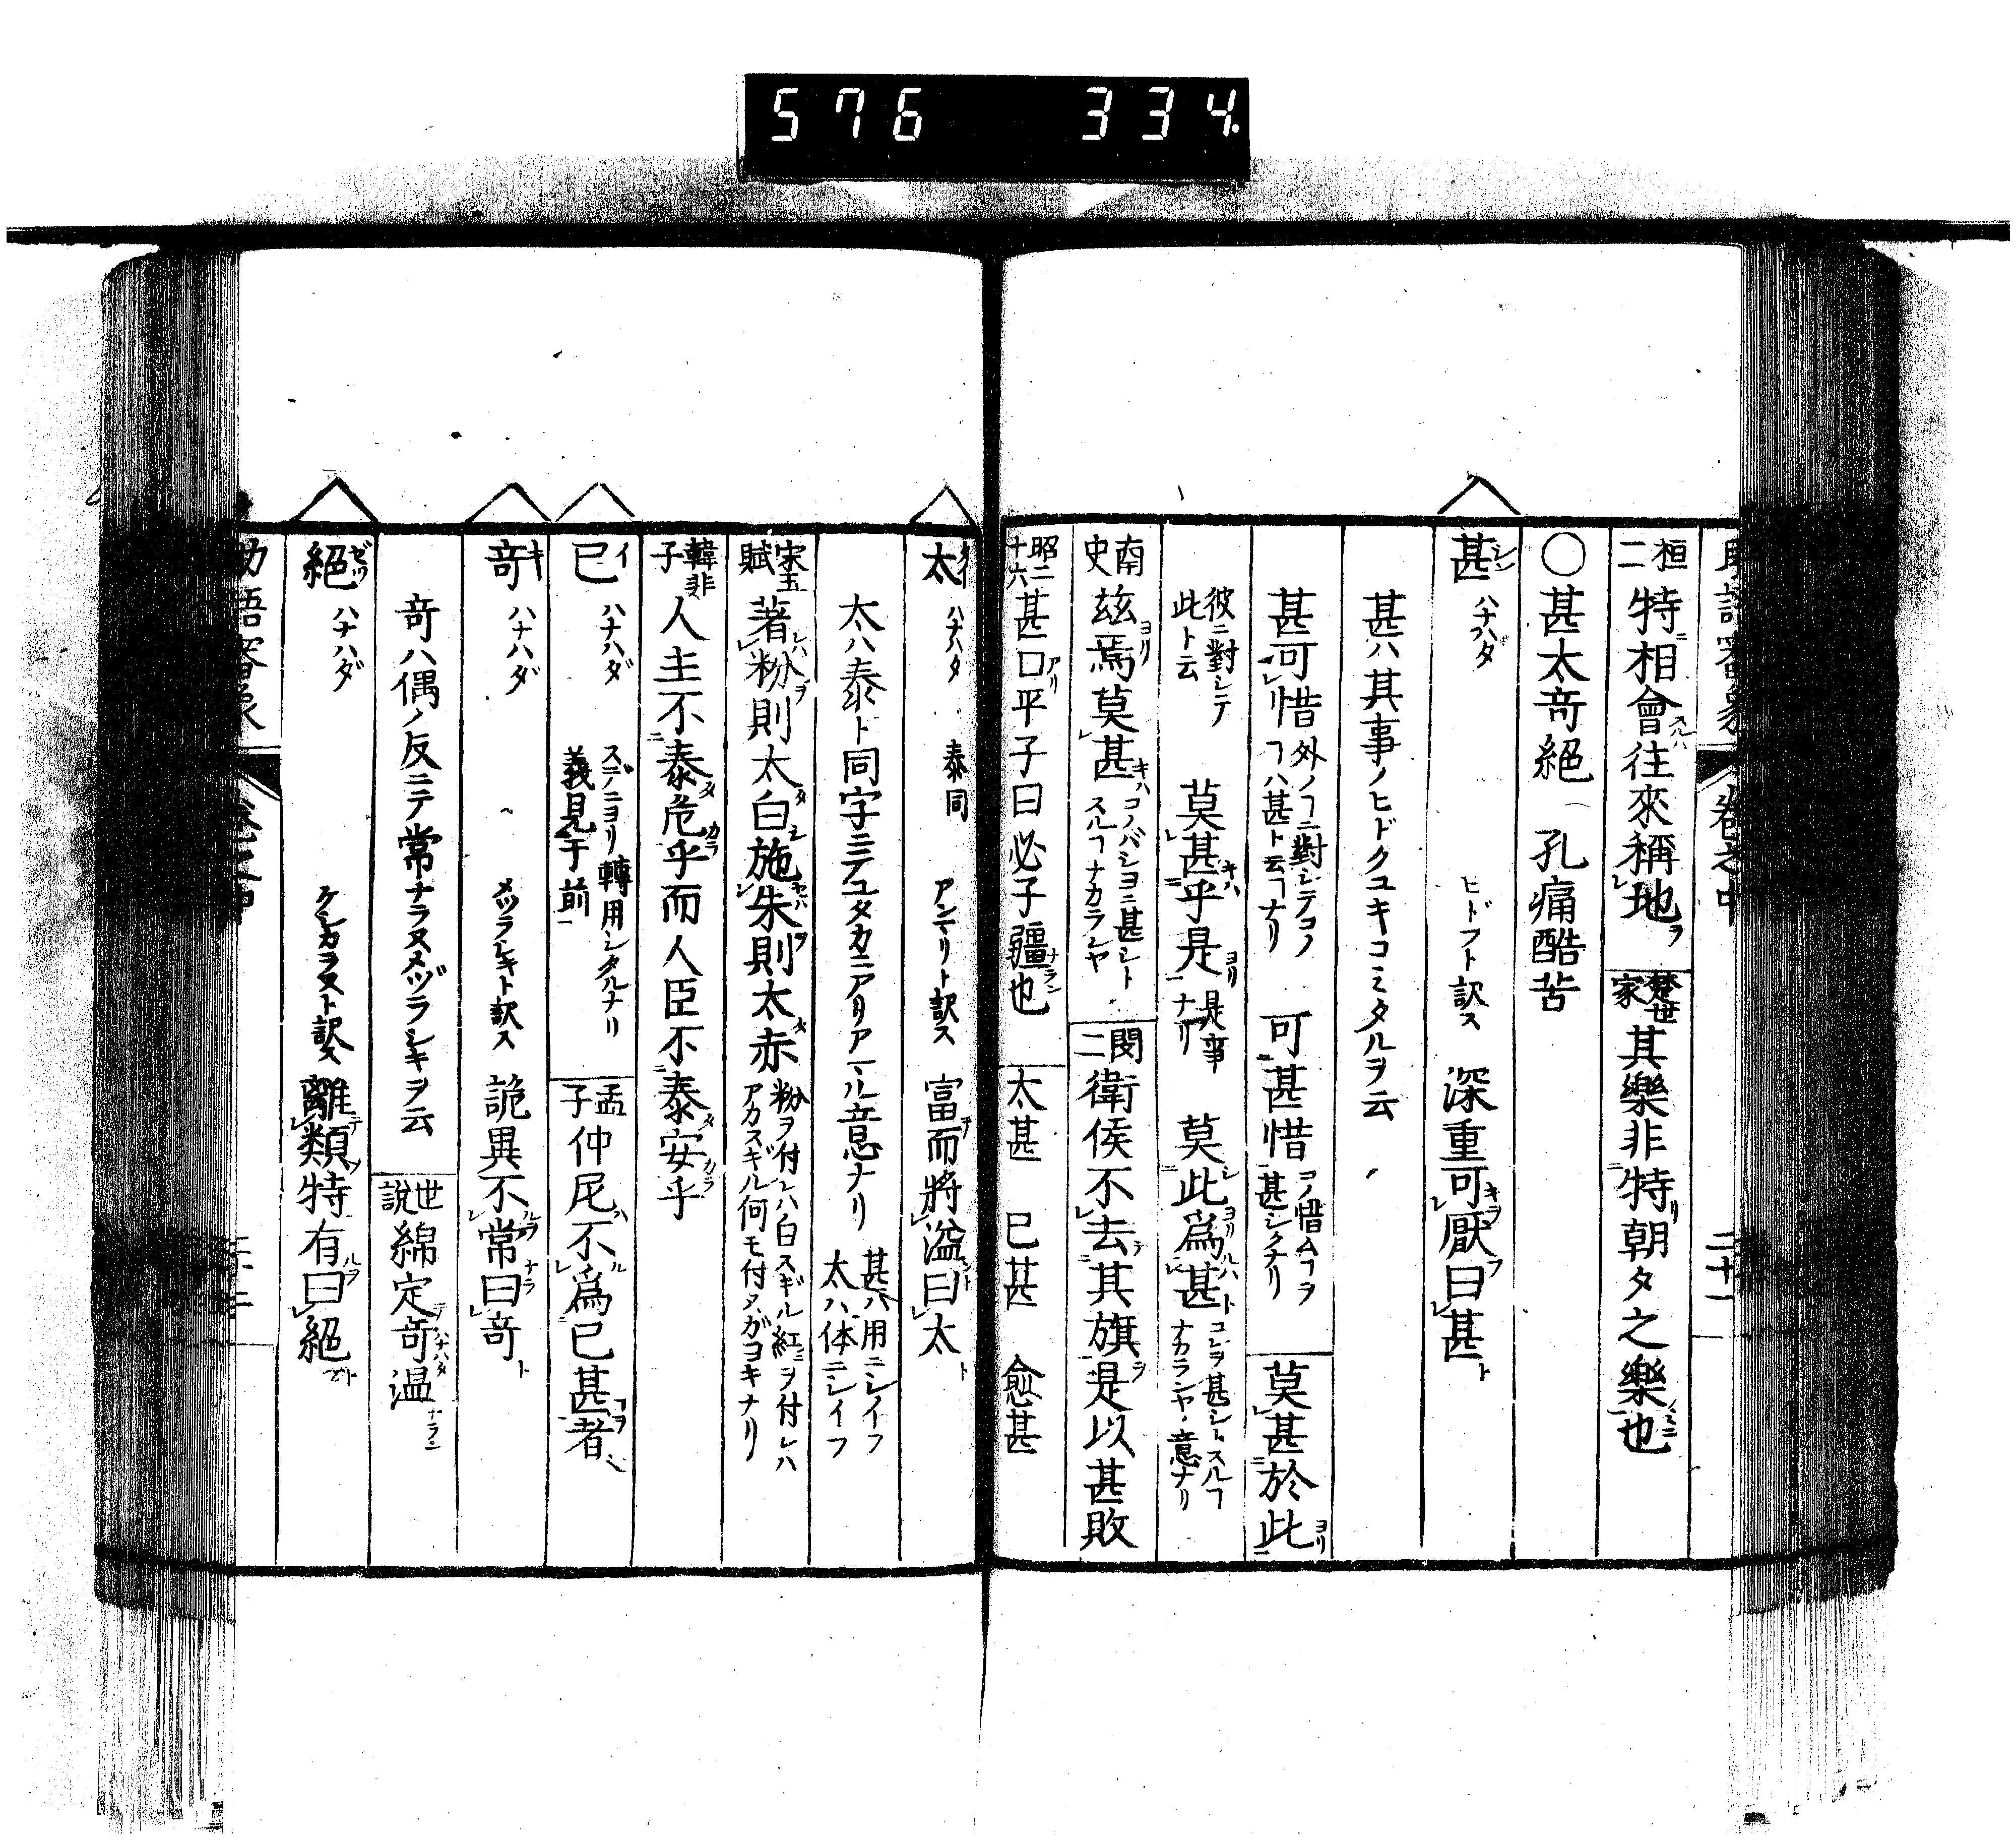 576 334
助語審象 卷之中 二十一
桓二 特相會往來稱地 楚世家 其樂非特朝夕之樂也
○甚太奇絕 孔痛酷苦
甚 シン ハナハダ ヒドフト訳ス 深重可厭曰甚
甚ハ其事ノヒドクユキコミタルヲ云
甚可惜 外ノヿニ對シテコノヿハ甚ト云ヿナリ 可甚惜 コノ惜ムヿヲ甚シクナリ 莫甚於此
彼ニ對シテ此ト云 莫甚乎是 是事ナリ 莫此爲甚 コレヲ甚シトスルヿナカランヤノ意ナリ
南史 茲焉莫甚 コノバシヨニ甚シトスルヿナカランヤ 閔二 衛侯不去其旗是以甚敗
昭二十六 甚口平子曰必子彊也 太甚 已甚 愈甚
太 タイ ハナハタ 泰同 アンマリト訳ス 富而將溢曰太
太ハ泰ト同字ニテユタカニアリアマル意ナリ 甚ハ用ニシイフ 太ハ体ニシイフ
宋玉賦 著粉則太白施朱則太赤 粉ヲ付レハ白スギル紅ヲ付レハアカスギル何モ付ヌガヨキナリ
韓非子 人主不泰危乎而人臣不泰安乎
已 イ ハナハダ スデニヨリ轉用シタルナリ 義見于前 孟子 仲尼不爲已甚者
奇 キ ハナハダ メヅラシキト訳ス 詭異不常曰奇
奇ハ偶ノ反ニテ常ナラヌメヅラシキヲ云 世說 綿定奇温
絕 ゼツ ハナハダ ケシカラヌト訳ス 離類特有曰絕
助語審象 卷之中